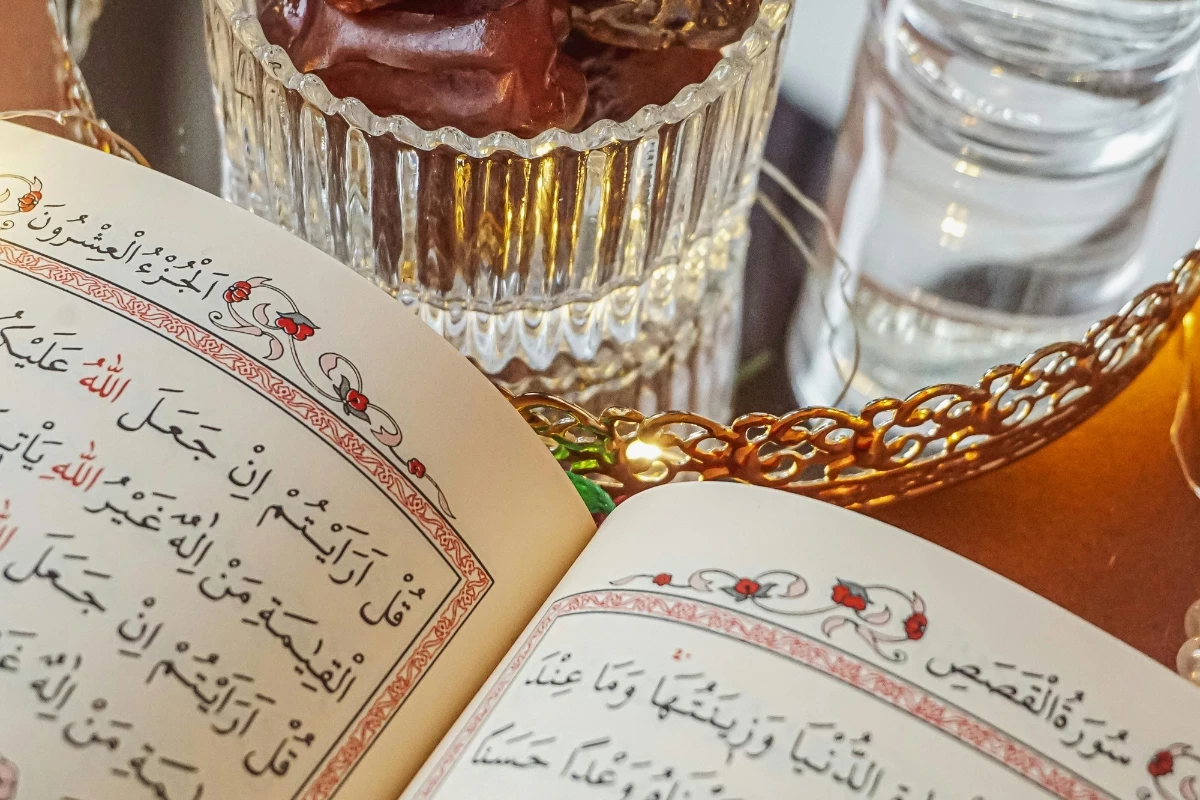 سُورَةُ الْقَصَصِ
الدُّنْيَا وَزِينَتُهَا وَمَا عِنْدَ
وَعْدًا حَسَنًا
اَلْجُزْءُ الْعِشْرُونَ
قُلْ اَرَاَيْتُمْ اِنْ جَعَلَ اللّٰهُ
الْقِيٰمَةِ مَنْ اِلٰهٌ غَيْرُ اللّٰهِ
قُلْ اَرَاَيْتُمْ اِنْ جَعَلَ
مَنْ اِلٰهٌ